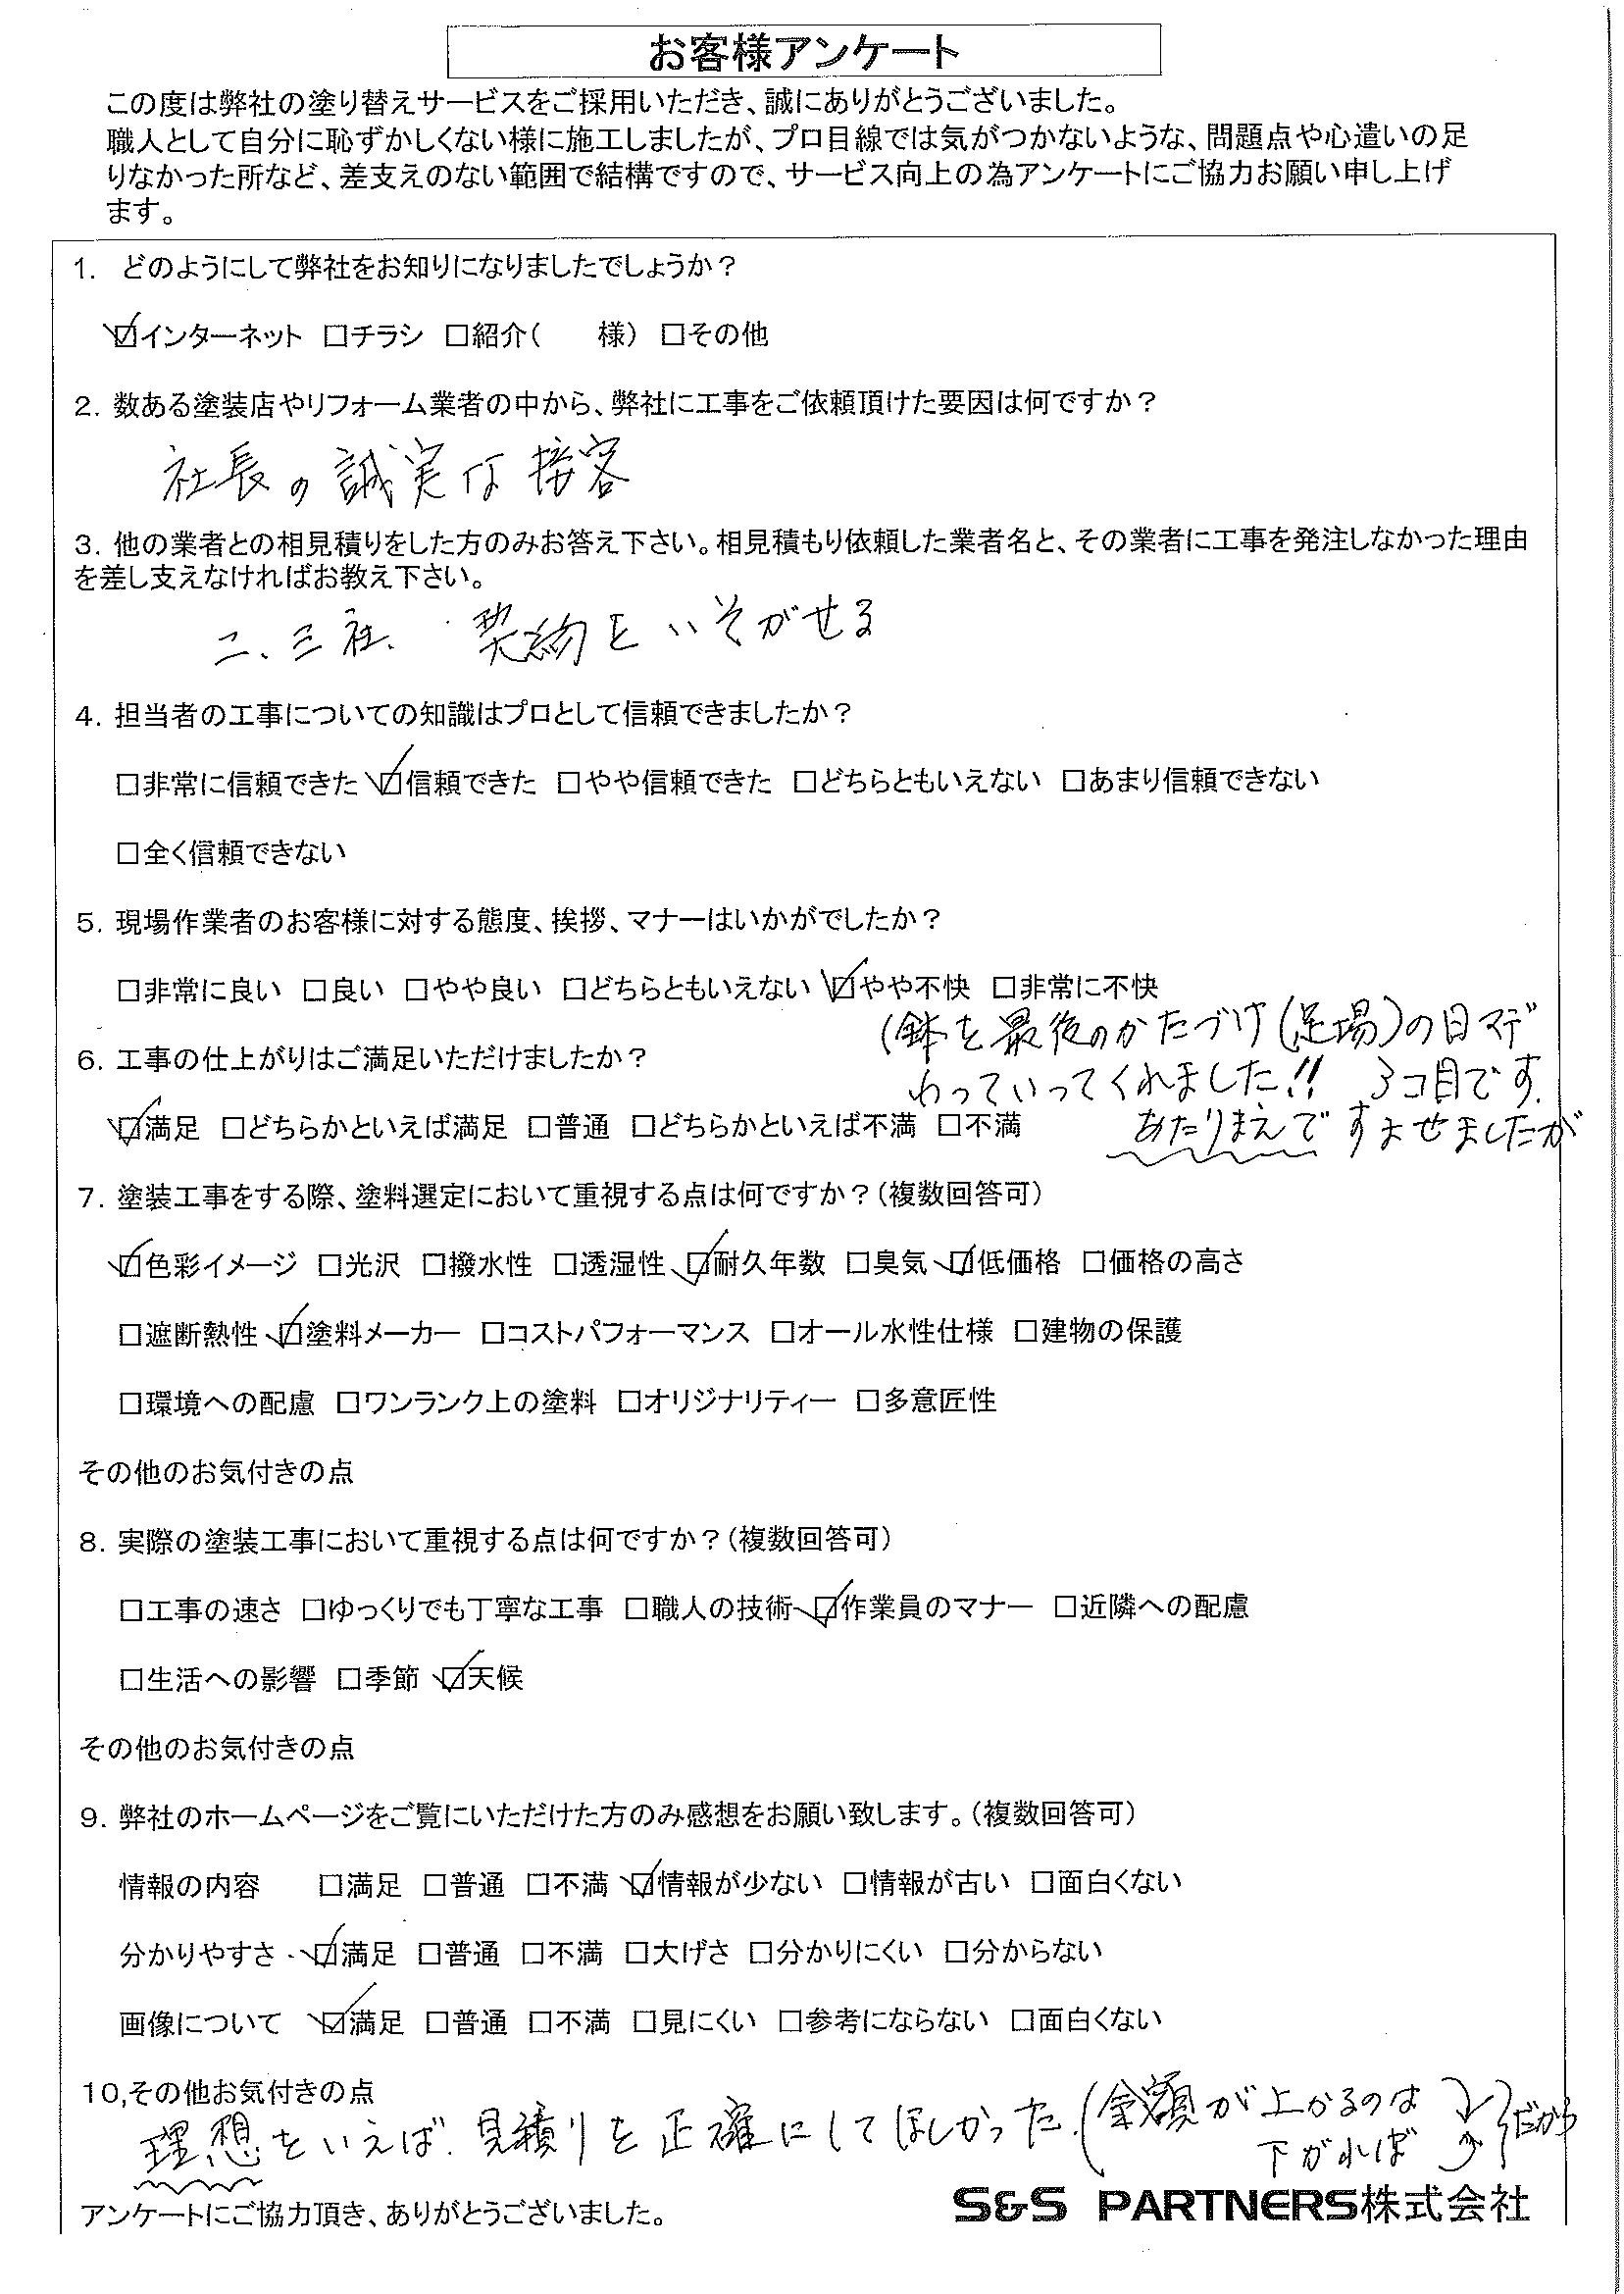 お客様アンケート
この度は弊社の塗り替えサービスをご採用いただき、誠にありがとうございました。
職人として自分に恥ずかしくない様に施工しましたが、プロ目線では気がつかないような、問題点や心遣いの足
りなかった所など、差支えのない範囲で結構ですので、サービス向上の為アンケートにご協力お願い申し上げ
ます。
1. どのようにして弊社をお知りになりましたでしょうか？
☑インターネット □チラシ □紹介( 様) □その他
2. 数ある塗装店やリフォーム業者の中から、弊社に工事をご依頼頂けた要因は何ですか？
社長の誠実な接客
3. 他の業者との相見積りをした方のみお答え下さい。相見積もり依頼した業者名と、その業者に工事を発注しなかった理由
を差し支えなければお教え下さい。
二、三社、契約をいそがせる
4. 担当者の工事についての知識はプロとして信頼できましたか？
□非常に信頼できた ☑信頼できた □やや信頼できた □どちらともいえない □あまり信頼できない
□全く信頼できない
5. 現場作業者のお客様に対する態度、挨拶、マナーはいかがでしたか？
□非常に良い □良い □やや良い □どちらともいえない ☑やや不快 □非常に不快
(鉢を最後のかたづけ(足場)の日マデ
6. 工事の仕上がりはご満足いただけましたか？
わっていってくれました!! 3コ目です.
☑満足 □どちらかといえば満足 □普通 □どちらかといえば不満 □不満
あたりまえですませましたが
7. 塗装工事をする際、塗料選定において重視する点は何ですか？(複数回答可)
☑色彩イメージ □光沢 □撥水性 □透湿性 ☑耐久年数 □臭気 ☑低価格 □価格の高さ
□遮断熱性 ☑塗料メーカー □コストパフォーマンス □オール水性仕様 □建物の保護
□環境への配慮 □ワンランク上の塗料 □オリジナリティー □多意匠性
その他のお気付きの点
8. 実際の塗装工事において重視する点は何ですか？(複数回答可)
□工事の速さ □ゆっくりでも丁寧な工事 □職人の技術 ☑作業員のマナー □近隣への配慮
□生活への影響 □季節 ☑天候
その他のお気付きの点
9. 弊社のホームページをご覧にいただけた方のみ感想をお願い致します。(複数回答可)
情報の内容 □満足 □普通 □不満 ☑情報が少ない □情報が古い □面白くない
分かりやすさ ☑満足 □普通 □不満 □大げさ □分かりにくい □分からない
画像について ☑満足 □普通 □不満 □見にくい □参考にならない □面白くない
10,その他お気付きの点
理想をいえば.見積りを正確にしてほしかった.(金額が上がるのは
下がれば
だから
アンケートにご協力頂き、ありがとうございました。
S&S PARTNERS株式会社